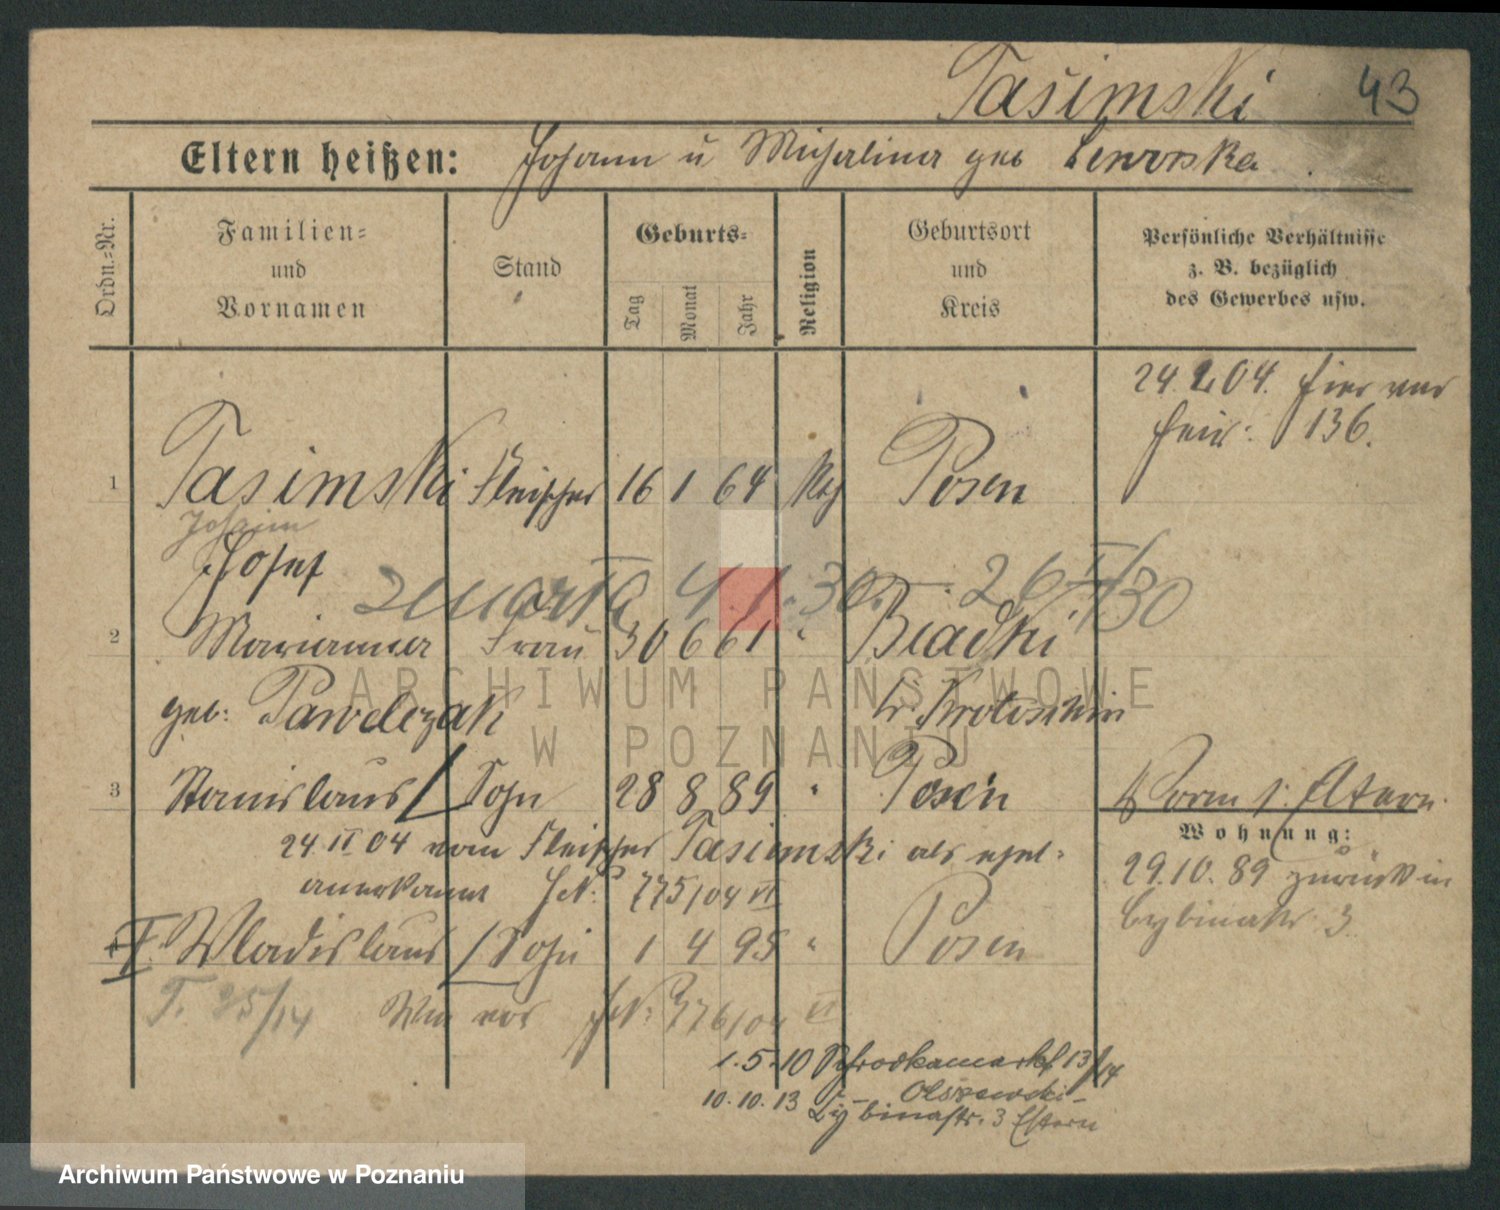 Tasimski 43
Eltern heißen: Johann u Michalina geb
Ordn.-Nr.
Familien- und Vornamen
Stand
Geburts-
Tag
Monat
Jahr
Religion
Geburtsort und Kreis
Persönliche Verhältnisse
z. B. bezüglich
des Gewerbes usw.
24. 2 04. hier
136.
1 Tasimski Fleischer 16 1 64 Posen
Josef
4.1.30. 26 30
2 Marianna Frau 30 6 61 " Biadki
geb: Pawelczak Kr. Krotoschin
ARCHIWUM PAŃSTWOWE
W POZNANIU
3 Stanislaus / Sohn 28 8 89 " Posen
Wohnung:
24. II 04 vom Fleischer Tasimski als ehel-
anerkannt J.N: 775/04 VI
29.10.89 zurück in
Lybinastr. 3
Wladislaus / Sohn 1 4 95 " Posen
T. 25/14 Wie vor J.N: 776/04 VI
1.5.10 Schrodkamarkt 13/14
Olszewski
10.10.13 Lybinastr. 3 Eltern
Archiwum Państwowe w Poznaniu